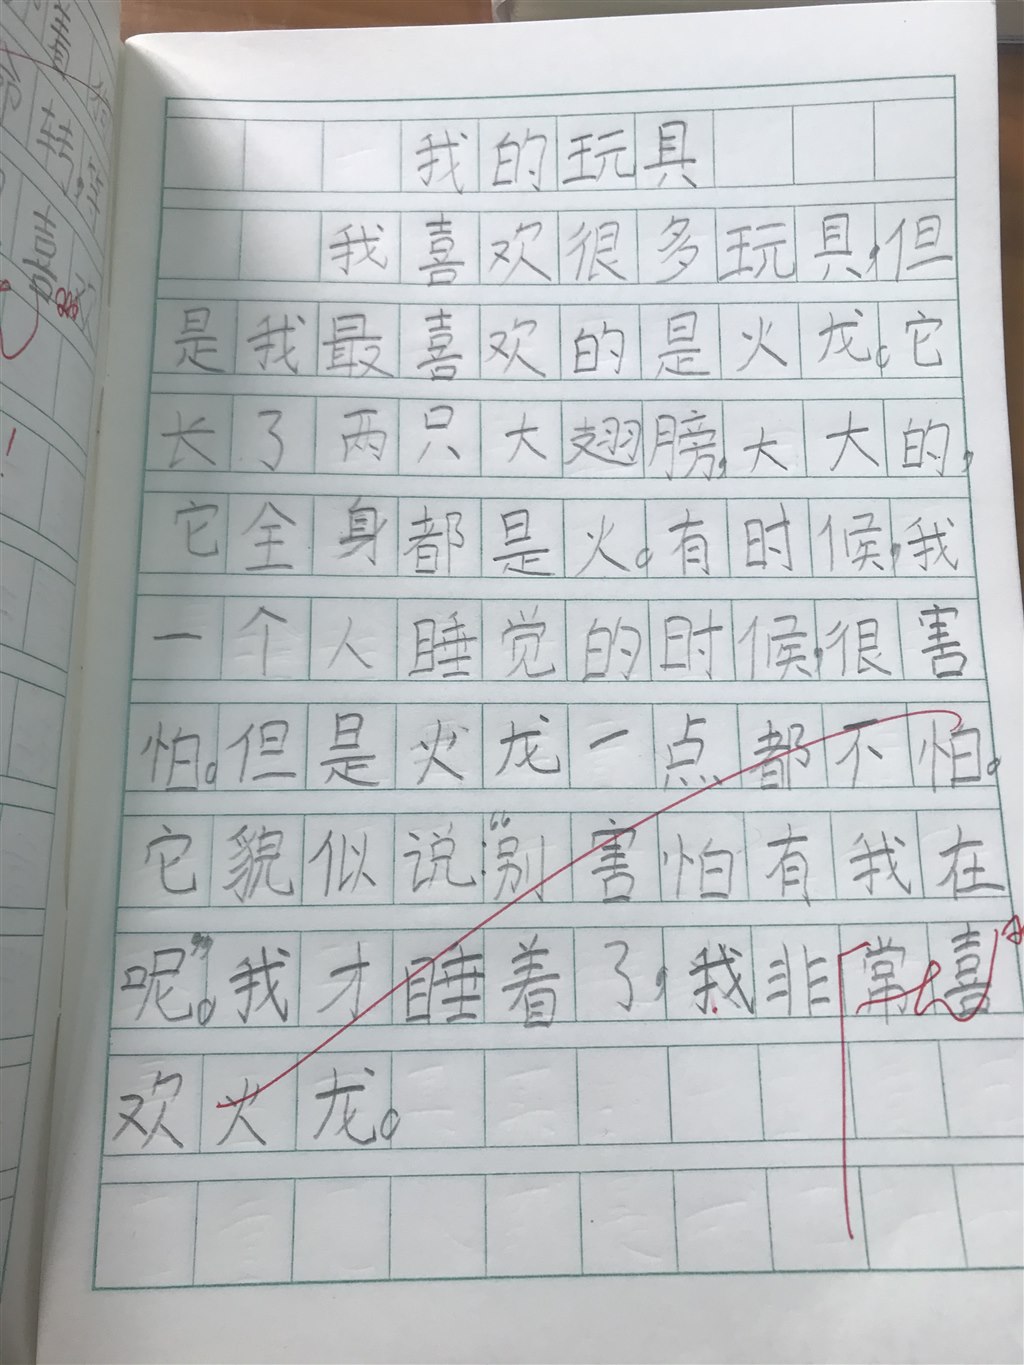 我的玩具
我喜欢很多玩具,但
是我最喜欢的是火龙。它
长了两只大翅膀,大大的,
它全身都是火。有时候,我
一个人睡觉的时候,很害
怕。但是火龙一点都不怕。
它貌似说:“别害怕有我在
呢”。我才睡着了,我非常喜
欢火龙。